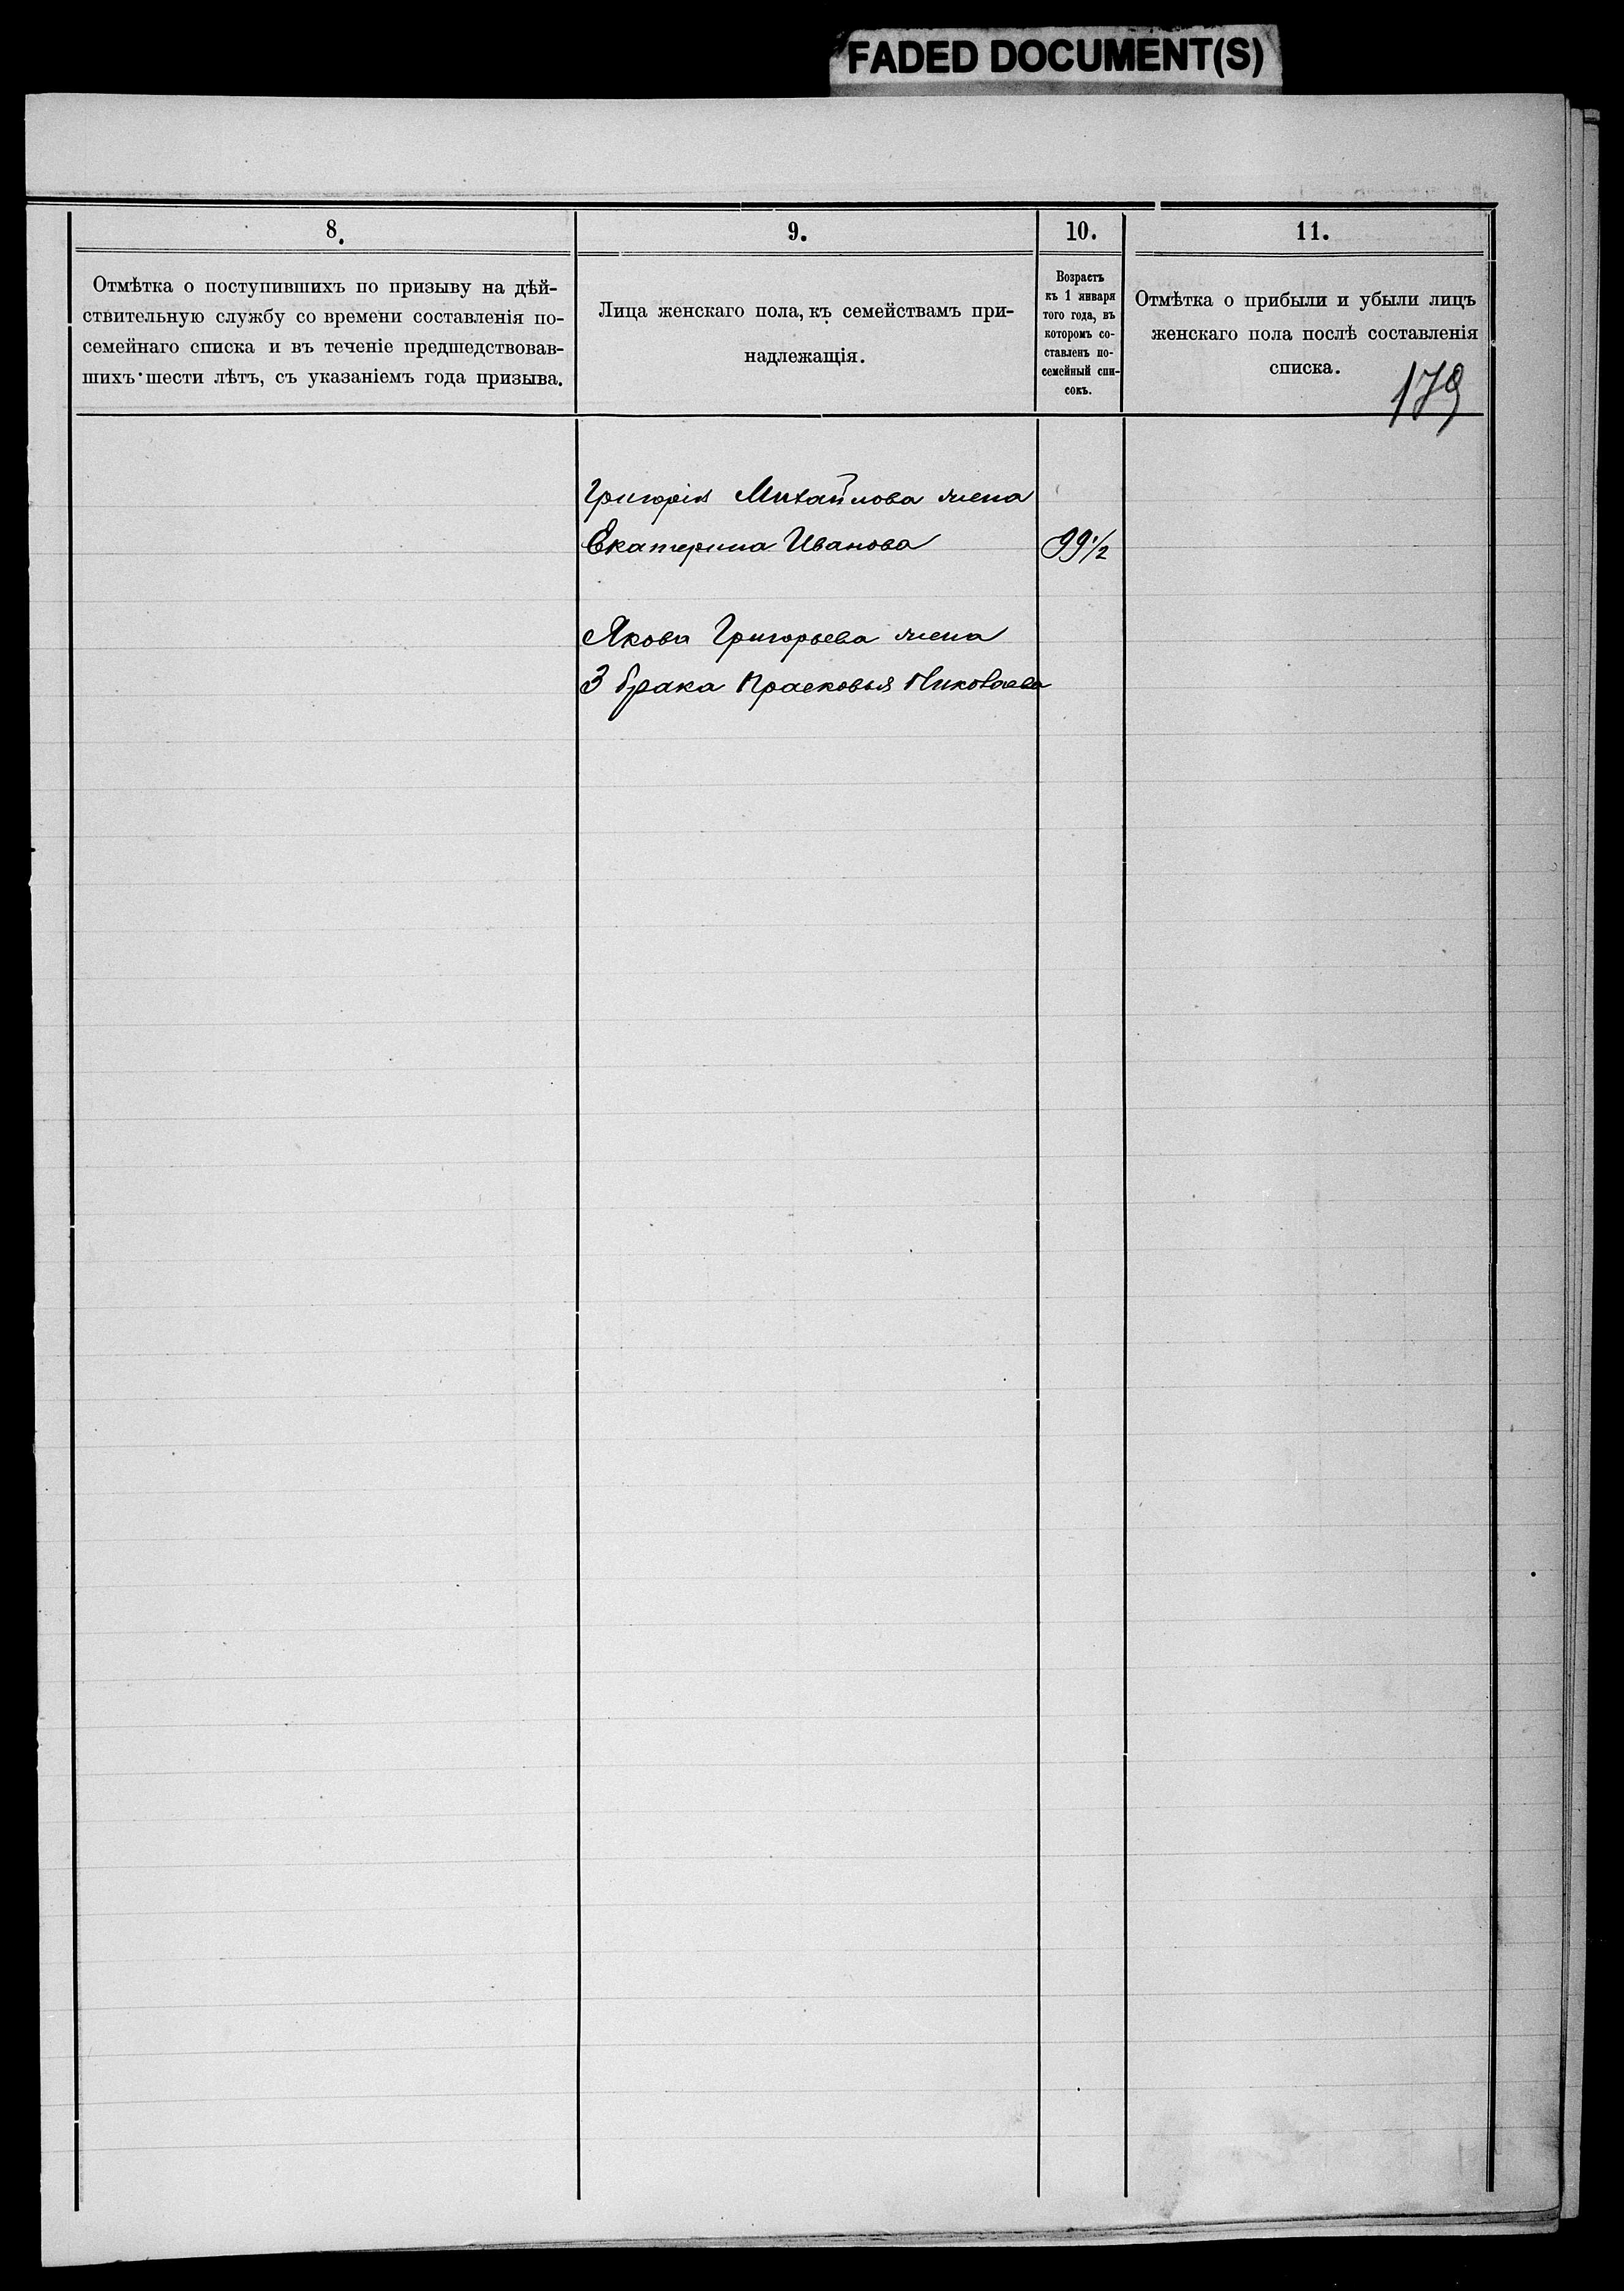 FADED DOCUMENT(S)
8.
Отмѣтка о поступившихъ по призыву на дѣй-
ствительную службу со времени составленія по-
семейнаго списка и въ теченіе предшедствовав-
шихъ шести лѣтъ, съ указаніемъ года призыва.
9.
Лица женскаго пола, къ семействамъ при-
надлежащія.
10.
Возрастъ
къ 1 января
того года, въ
которомъ со-
ставленъ по-
семейный спи-
сокъ.
11.
Отмѣтка о прибыли и убыли лицъ
женскаго пола послѣ составленія
списка.
179
Григорія Михайлова жена
Екатерина Иванова 99 1/2
Якова Григорьева жена
3 брака Прасковья Николаева